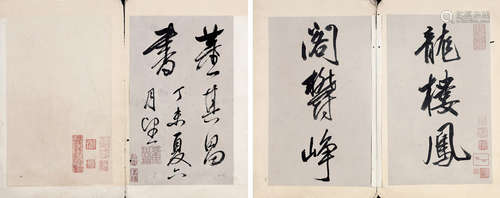 龍樓鳳
閣鬱崢
董其昌
書丁未夏六
月望